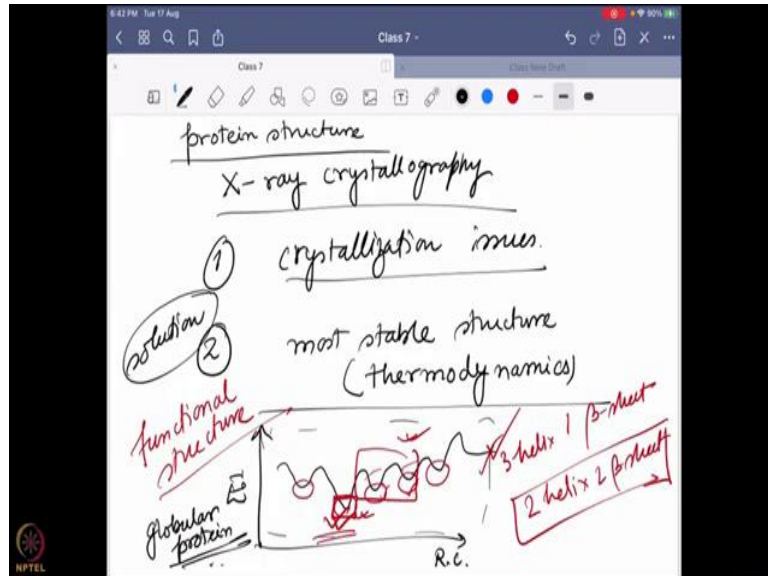 6:42 PM Tue 17 Aug
90%
Class 7
Class 7
protein structure
X-ray crystallography
1 crystallization issues.
solution
2 most stable structure
(thermodynamics)
functional structure
3 helix 1 β-sheet
2 helix 2 β sheet
E
globular protein
R.C.
NPTEL